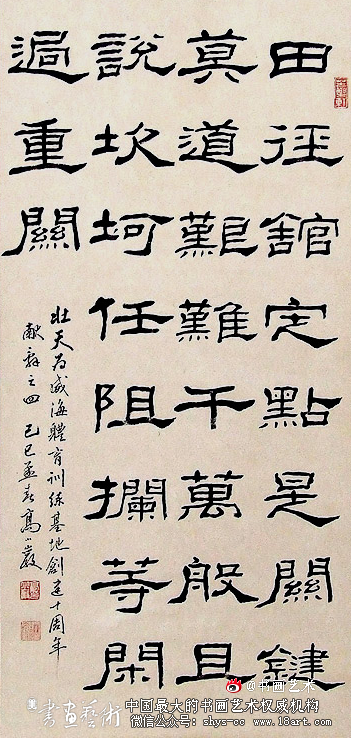 田徑舘定點是關鍵
莫道艱難千萬般且
說坎坷任阻攔等閑
過重關
壯天为威海體育训练基地創建十周年
献辞之四 己巳孟春高小巖
@书画艺术
書畫藝術
中国最大的书画艺术权威机构
微信公众号：shys-cc www.18art.com